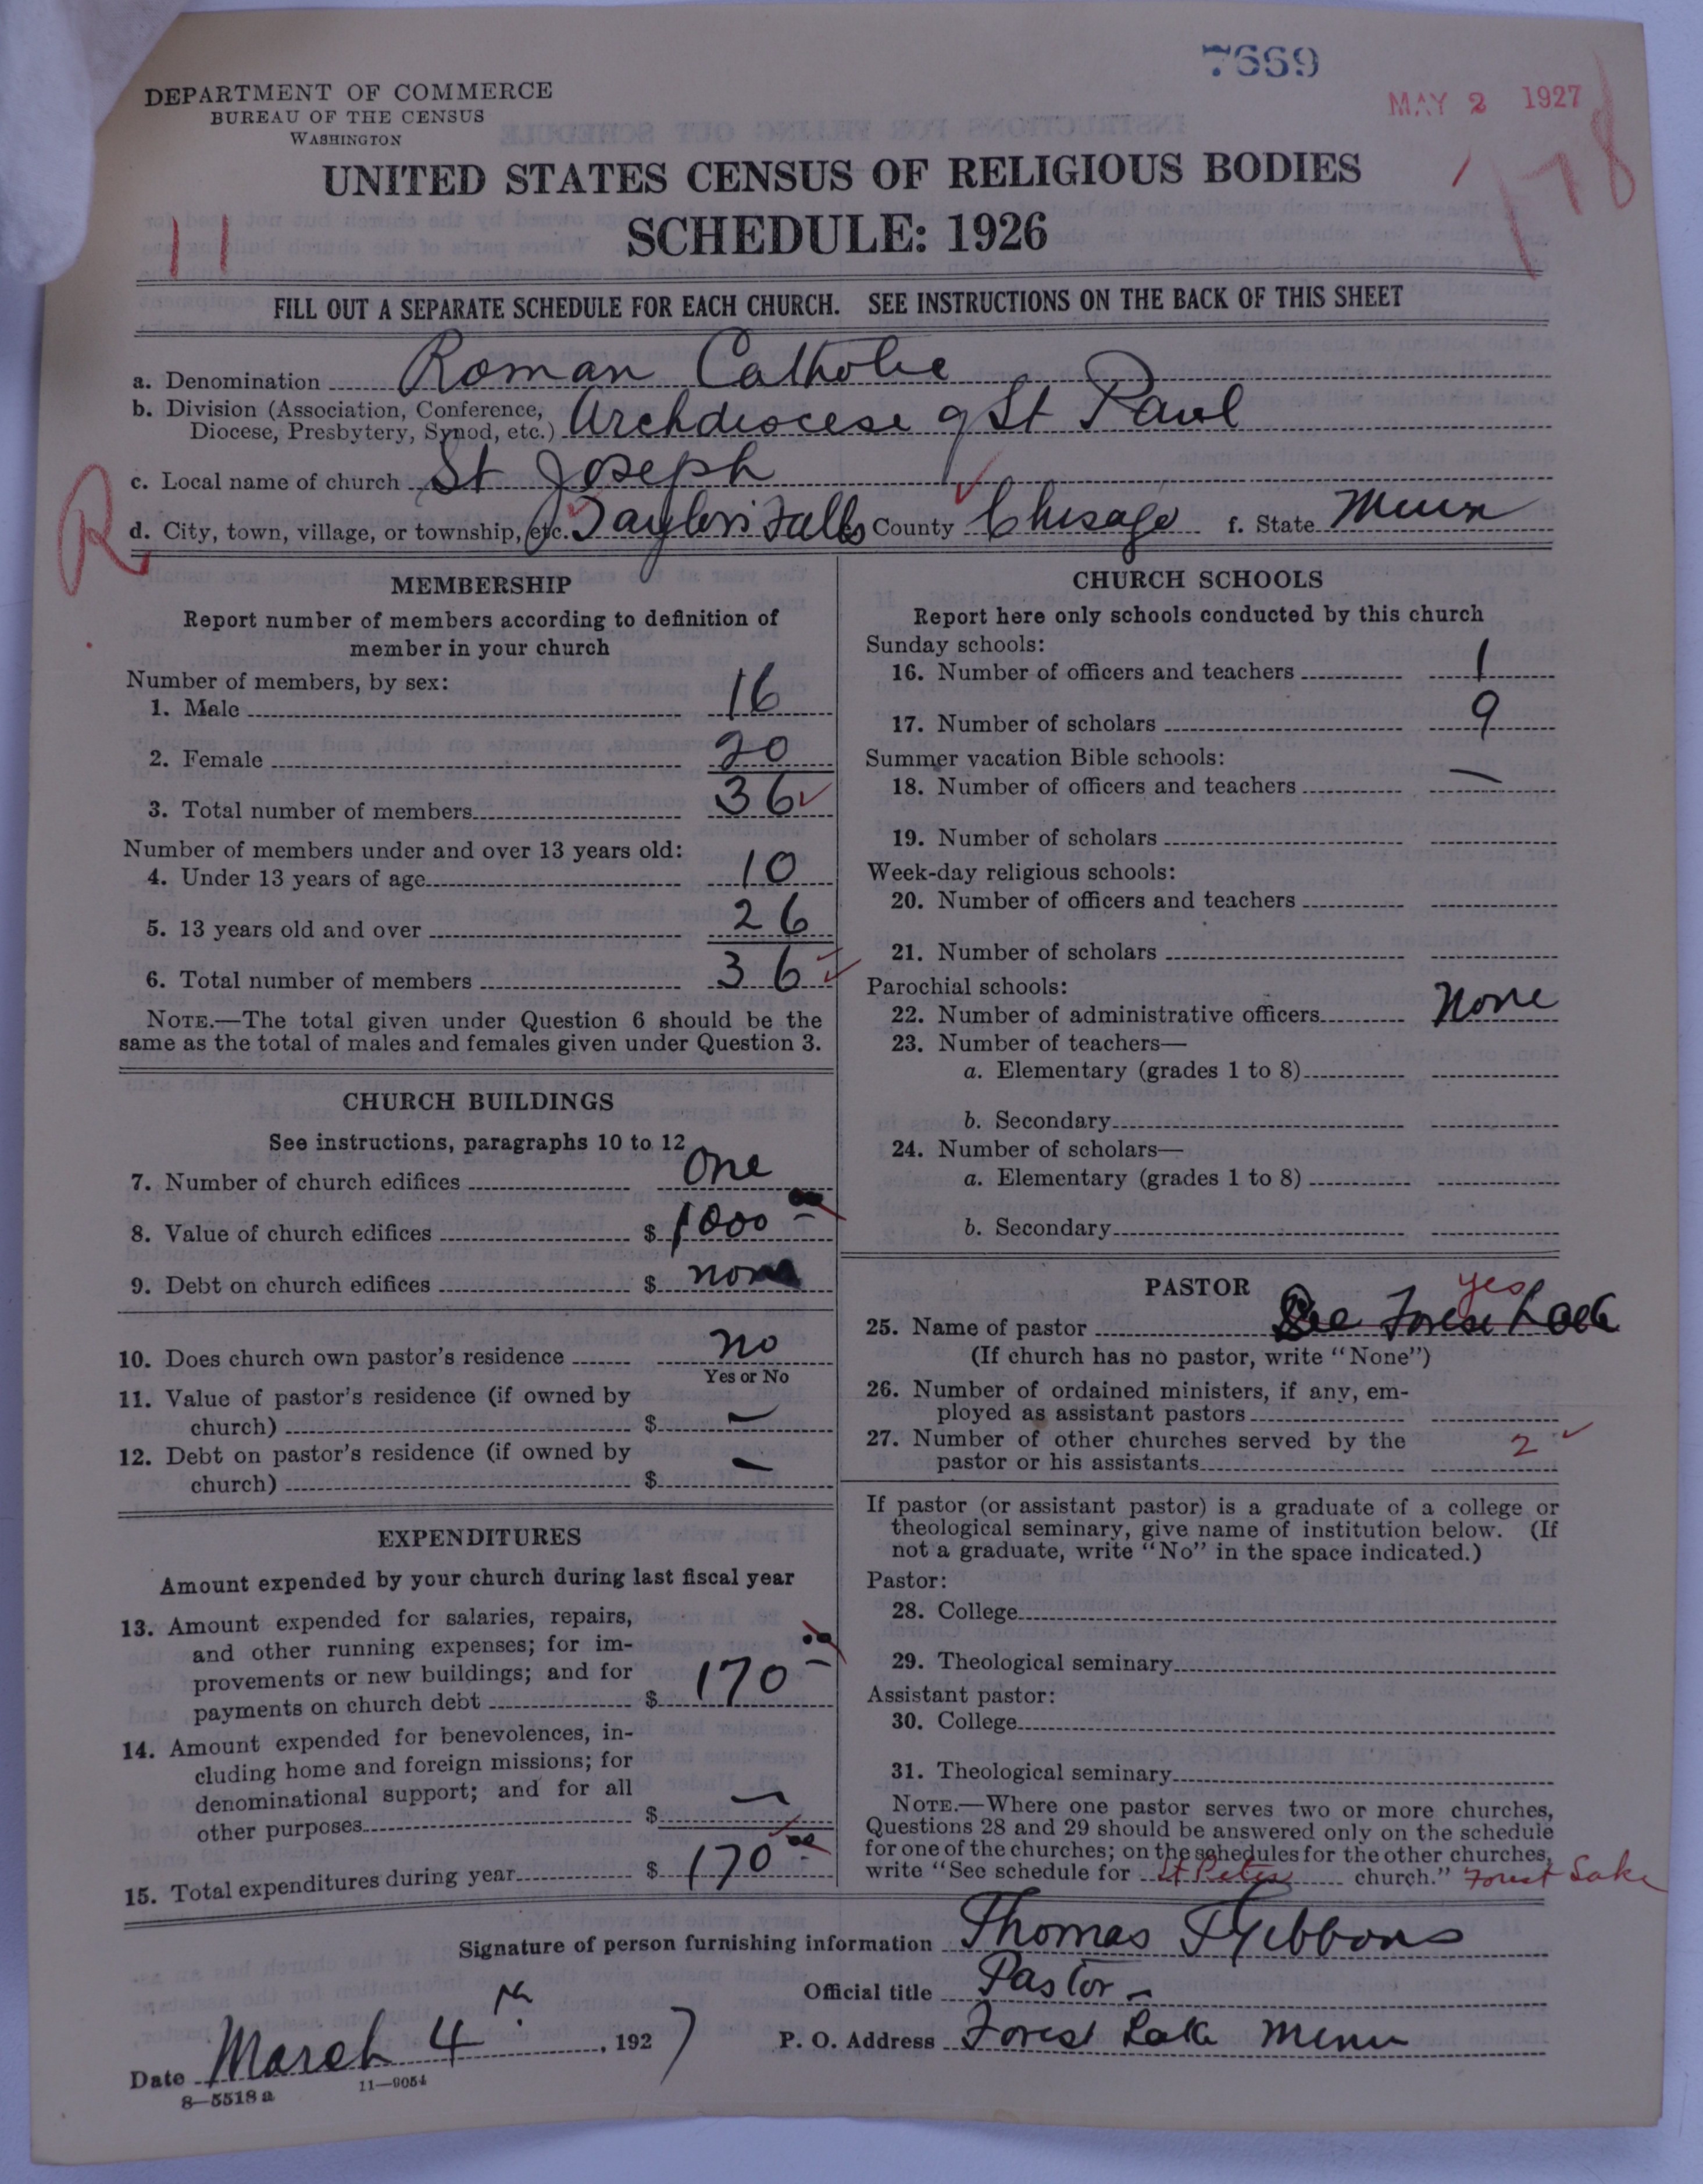 7669
MAY 2 1927
DEPARTMENT OF COMMERCE
BUREAU OF THE CENSUS
WASHINGTON
UNITED STATES CENSUS OF RELIGIOUS BODIES
SCHEDULE: 1926
11
178
FILL OUT A SEPARATE SCHEDULE FOR EACH CHURCH. SEE INSTRUCTIONS ON THE BACK OF THIS SHEET
a. Denomination Roman Catholic
b. Division (Association, Conference,
Diocese, Presbytery, Synod, etc.) Archdiocese of St Paul
c. Local name of church St Joseph
R
d. City, town, village, or township, etc. Taylors Falls County Chisago f. State Minn
MEMBERSHIP
Report number of members according to definition of
member in your church
Number of members, by sex:
1. Male 16
2. Female 20
3. Total number of members 36
Number of members under and over 13 years old:
4. Under 13 years of age 10
5. 13 years old and over 26
6. Total number of members 36
NOTE.—The total given under Question 6 should be the
same as the total of males and females given under Question 3.
CHURCH BUILDINGS
See instructions, paragraphs 10 to 12
7. Number of church edifices One
8. Value of church edifices $ 1000 00
9. Debt on church edifices $ none
10. Does church own pastor's residence no
Yes or No
11. Value of pastor's residence (if owned by
church) $ —
12. Debt on pastor's residence (if owned by
church) $ —
EXPENDITURES
Amount expended by your church during last fiscal year
13. Amount expended for salaries, repairs,
and other running expenses; for im-
provements or new buildings; and for
payments on church debt $ 170 00
14. Amount expended for benevolences, in-
cluding home and foreign missions; for
denominational support; and for all
other purposes $ —
15. Total expenditures during year $ 170 00
CHURCH SCHOOLS
Report here only schools conducted by this church
Sunday schools:
16. Number of officers and teachers 1
17. Number of scholars 9
Summer vacation Bible schools:
18. Number of officers and teachers —
19. Number of scholars
Week-day religious schools:
20. Number of officers and teachers
21. Number of scholars
Parochial schools:
22. Number of administrative officers none
23. Number of teachers—
a. Elementary (grades 1 to 8)
b. Secondary
24. Number of scholars—
a. Elementary (grades 1 to 8)
b. Secondary
PASTOR
yes
25. Name of pastor See Forest Lake
(If church has no pastor, write "None")
26. Number of ordained ministers, if any, em-
ployed as assistant pastors
27. Number of other churches served by the
pastor or his assistants 2
If pastor (or assistant pastor) is a graduate of a college or
theological seminary, give name of institution below. (If
not a graduate, write "No" in the space indicated.)
Pastor:
28. College
29. Theological seminary
Assistant pastor:
30. College
31. Theological seminary
NOTE.—Where one pastor serves two or more churches,
Questions 28 and 29 should be answered only on the schedule
for one of the churches; on the schedules for the other churches,
write "See schedule for St Peter church." Forest Lake
Signature of person furnishing information Thomas F Gibbons
Official title Pastor
Date March 4th, 1927 P. O. Address Forest Lake Minn
8—5518 a 11—9054